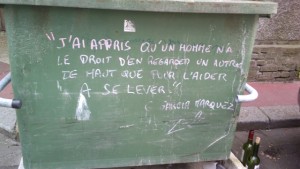 "J'AI APPRIS QU'UN HOMME N'A
LE DROIT D'EN REGARDER UN AUTRE
DE HAUT QUE POUR L'AIDER
A SE LEVER."
GARCIA MARQUEZ